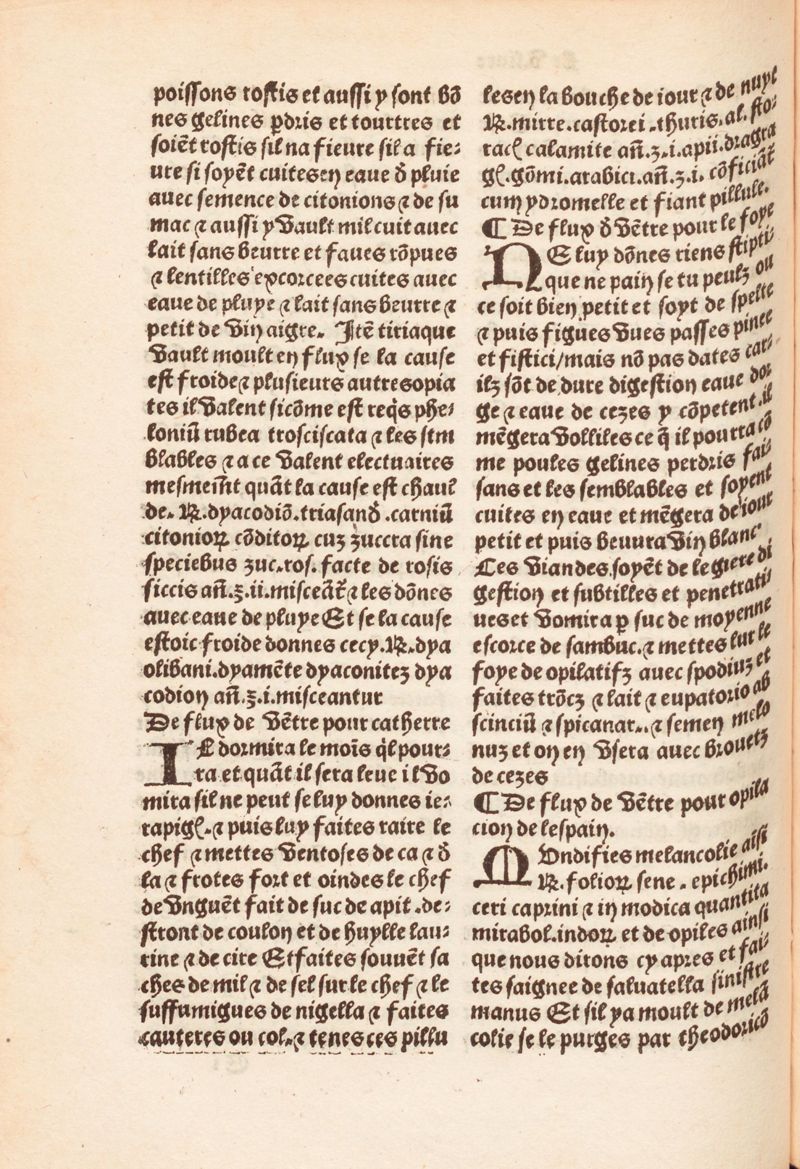 poissons rostis et aussi y sont bõ
nes gelines p̱dris et tourtres et
soiẽt rostis sil na fieure sil a fie⸗
ure si soyẽt cuites en eaue ď pluie
auec semence de citonions ⁊ de su
mac ⁊ aussi y vault mil cuit auec
lait sans beurre et faues rõpues
⁊ lentilles excorcees cuites auec
eaue de pluye ⁊ lait sans beurre ⁊
petit de vin aigre. Itẽ tiriaque
vault moult en flux se la cause
est froide ⁊ plusieurs autres opia
tes il valent sicõme est reqͥs phe⸗
loniũ rubea trosciscata ⁊ les sem
blables ⁊ a ce valent electuaires
mesmem̃t quãt la cause est chaul
de. ℞. dyacodiõ. triasanď. carniũ
citonioꝝ cõditoꝝ cuꝫ zuccra sine
speciebus zuc. ros. facte de rosis
siccis añ.ʒ.ii. misceãt̃ ⁊ les dõnes
auec eaue de pluye Et se la cause
estoit froide donnes cecy. ℞. dya
olibani. dyamẽte dyaconiteʒ dya
codion añ.ʒ.i. misceantur
De flux de vẽtre pour catherre
IL dormira le moĩs q̃l pour⸗
ra et quãt il sera leue il vo
mira sil ne peut se luy donnes ie⸗
rapigľ. ⁊ puis luy faites raire le
chef ⁊ mettes ventoses de ca ⁊ ď
la ⁊ frotes fort et oindes le chef
de vnguẽt fait de suc de apit. de⸗
stront de coulon et de huylle lau⸗
rine ⁊ de cire Et faites souuẽt sa
ches de mil ⁊ de sel sur le chef ⁊ le
suffumigues de nigella ⁊ faites
cauteres ou col. ⁊ tenes ces pillu
les en la bouche de iour ⁊ de nuyt
℞. mirre. castorei. thuris. al. sto⸗
racľ calamite añ.ʒ.i. apii. dragra
gľ. gõmi. arabici. añ.ʒ.i. cõficiãt̃
cum ydromelle et fiant pillule.
¶ De flux ď vẽtre pour le foye
NE luy dõnes riens stipti⸗
que ne pain se tu peulz ou
ce soit bien petit et soyt de spelte
⁊ puis figues vues passes pinee
et fistici/mais nõ pas dates car⸗
ilz sõt de dure digestion eaue dor⸗
ge ⁊ eaue de cezes y cõpetent. il
mẽgera volliles ce q̃ il pourra cõ
me poules gelines perdris fai⸗
sans et les semblables et soyent
cuites en eaue et mẽgera de iour
petit et puis beuura vin blanc.
Les viandes. soyẽt de legiere di
gestion et subtilles et penetrati⸗
ues et vomira p̱ suc de moyenne
escorce de sambuc. ⁊ mettes sur le
foye de opilatifz auec spodiuʒ et
faites trõcz ⁊ lait ⁊ eupatorio ab
scinciũ ⁊ spicanar.. ⁊ semen melo
nuʒ et on en vsera auec brouetz
de cezes
¶ De flux de vẽtre pour opila
cion de lespain.
MVndifies melancolie aisi
℞. folioꝝ sene. epithimi.
ceri caprini ⁊ in modica quantita
mirabol. indoꝝ et de opiles ainsi
que nous dirons cy apres et fai⸗
tes saignee de saluatella sinistre
manus Et sil ya moult de melã
colie se le purges par theodoricõ